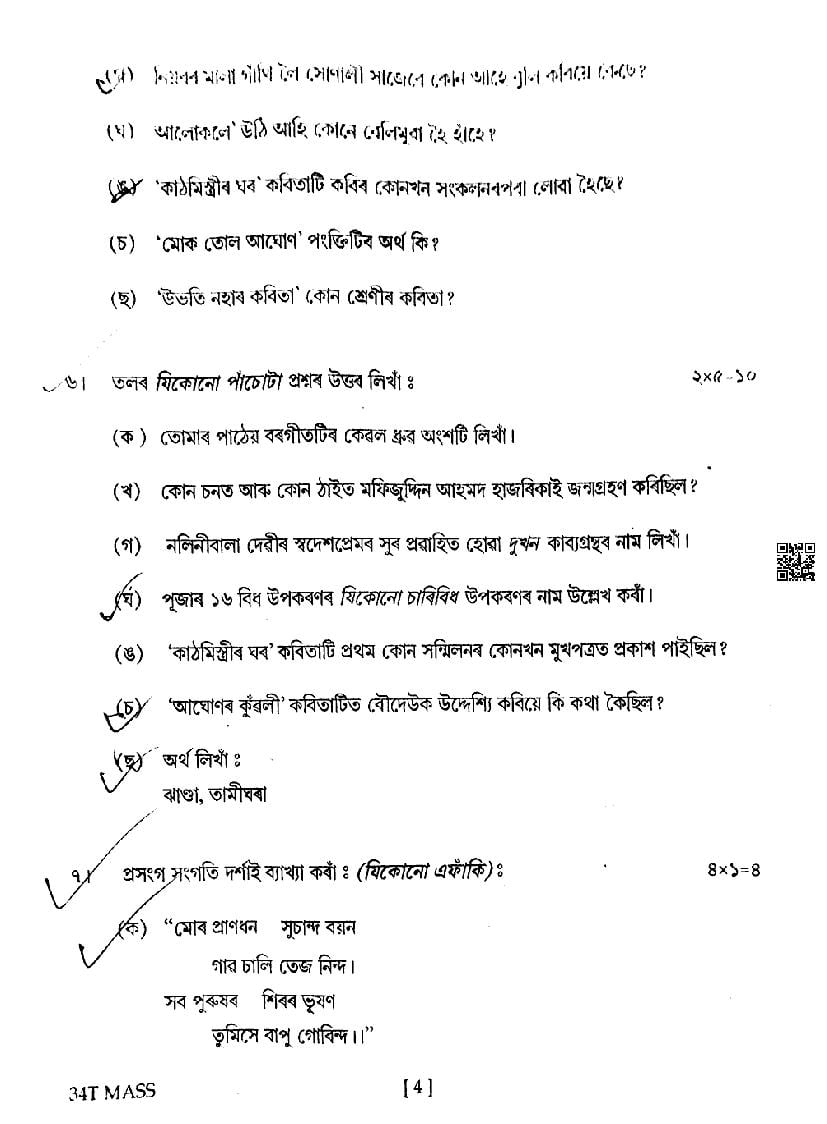 (গ) নিয়ৰৰ মালা গাঁথি লৈ সোণালী সাজেৰে কোন আহে বুলি কবিয়ে কৈছে?
(ঘ) আলোকলে’ উঠি আহি কোনে বেলিমুৱা হৈ হাঁহে?
(ঙ) ‘কাঠমিস্ত্ৰীৰ ঘৰ’ কবিতাটি কবিৰ কোনখন সংকলনৰপৰা লোৱা হৈছে?
(চ) ‘মোক তোল আঘোণ’ পংক্তিটিৰ অৰ্থ কি?
(ছ) ‘উভতি নহাৰ কবিতা’ কোন শ্ৰেণীৰ কবিতা?
৬। তলৰ যিকোনো পাঁচোটা প্ৰশ্নৰ উত্তৰ লিখাঁ : ২×৫=১০
(ক) তোমাৰ পাঠ্যে বৰগীতটিৰ কেৱল ধ্ৰুৱ অংশটি লিখাঁ।
(খ) কোন চনত আৰু কোন ঠাইত মফিজুদ্দিন আহমদ হাজৰিকাই জন্মগ্ৰহণ কৰিছিল?
(গ) নলিনীবালা দেৱীৰ স্বদেশপ্ৰেমৰ সুৰ প্ৰৱাহিত হোৱা দুখন কাব্যগ্ৰন্থৰ নাম লিখাঁ।
(ঘ) পূজাৰ ১৬ বিধ উপকৰণৰ যিকোনো চাৰিবিধ উপকৰণৰ নাম উল্লেখ কৰাঁ।
(ঙ) ‘কাঠমিস্ত্ৰীৰ ঘৰ’ কবিতাটি প্ৰথম কোন সন্মিলনৰ কোনখন মুখপত্ৰত প্ৰকাশ পাইছিল?
(চ) ‘আঘোণৰ কুঁৱলী’ কবিতাটিত বৌদেউক উদ্দেশ্যি কবিয়ে কি কথা কৈছিল?
(ছ) অৰ্থ লিখাঁ :
ঝাণ্ডা, তামীঘৰা
৭। প্ৰসংগ সংগতি দৰ্শাই ব্যাখ্যা কৰাঁ : (যিকোনো এফাঁকি) : ৪×১=৪
(ক) “মোৰ প্ৰাণধন সুচান্দ বয়ন
গাৱ চালি তেজ নিন্দ।
সব পুৰুষৰ শিৰৰ ভূষণ
তুমিসে বাপু গোবিন্দ।।”
34T MASS [ 4 ]